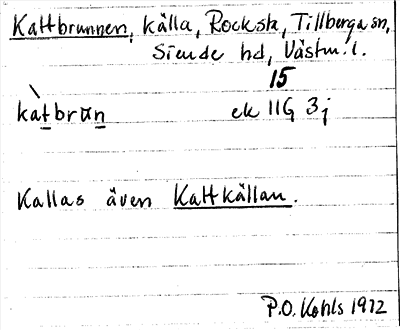 Kattbrunnen, källa, Rocksta, Tillberga sn,
Siende hd, Västm. l.
15
kàtbrŭn ek 11G 3j
Kallas även Kattkällan.
P.O. Kohls 1972